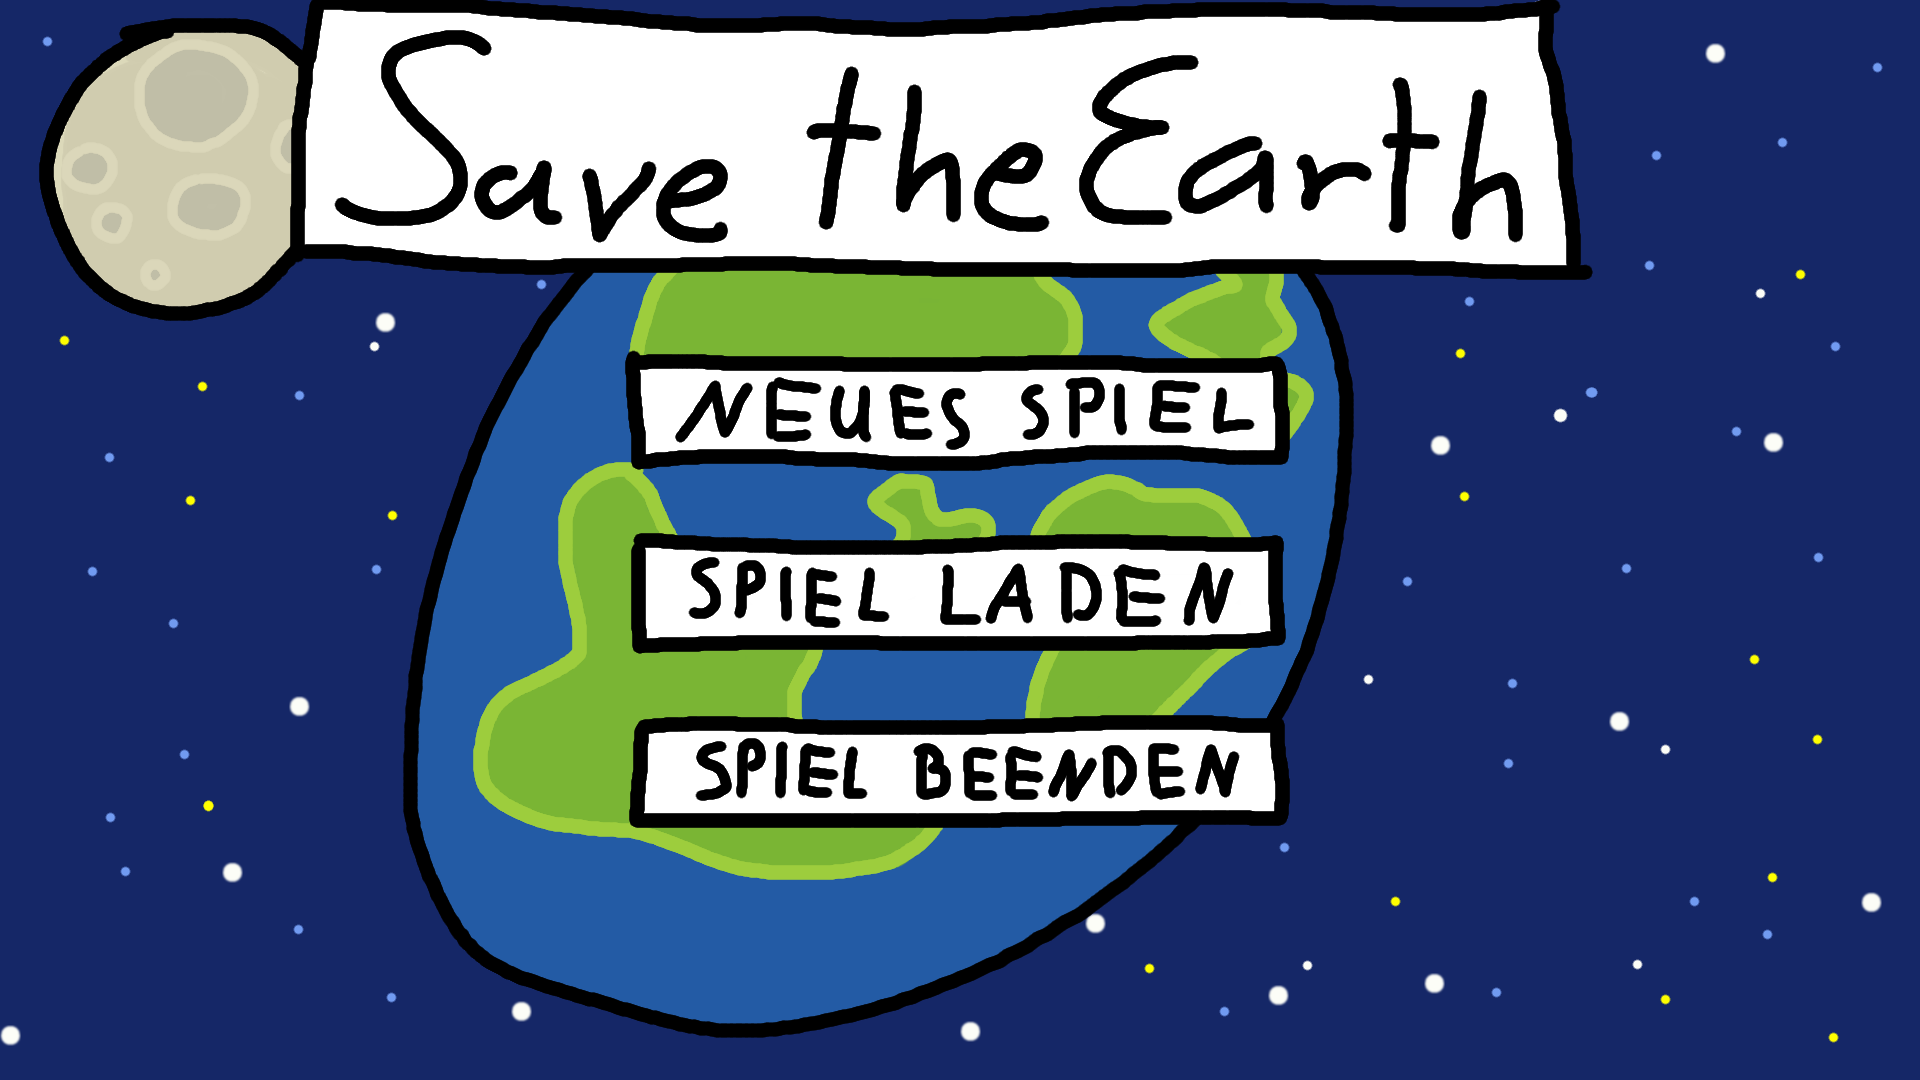 Save the Earth
NEUES SPIEL
SPIEL LADEN
SPIEL BEENDEN